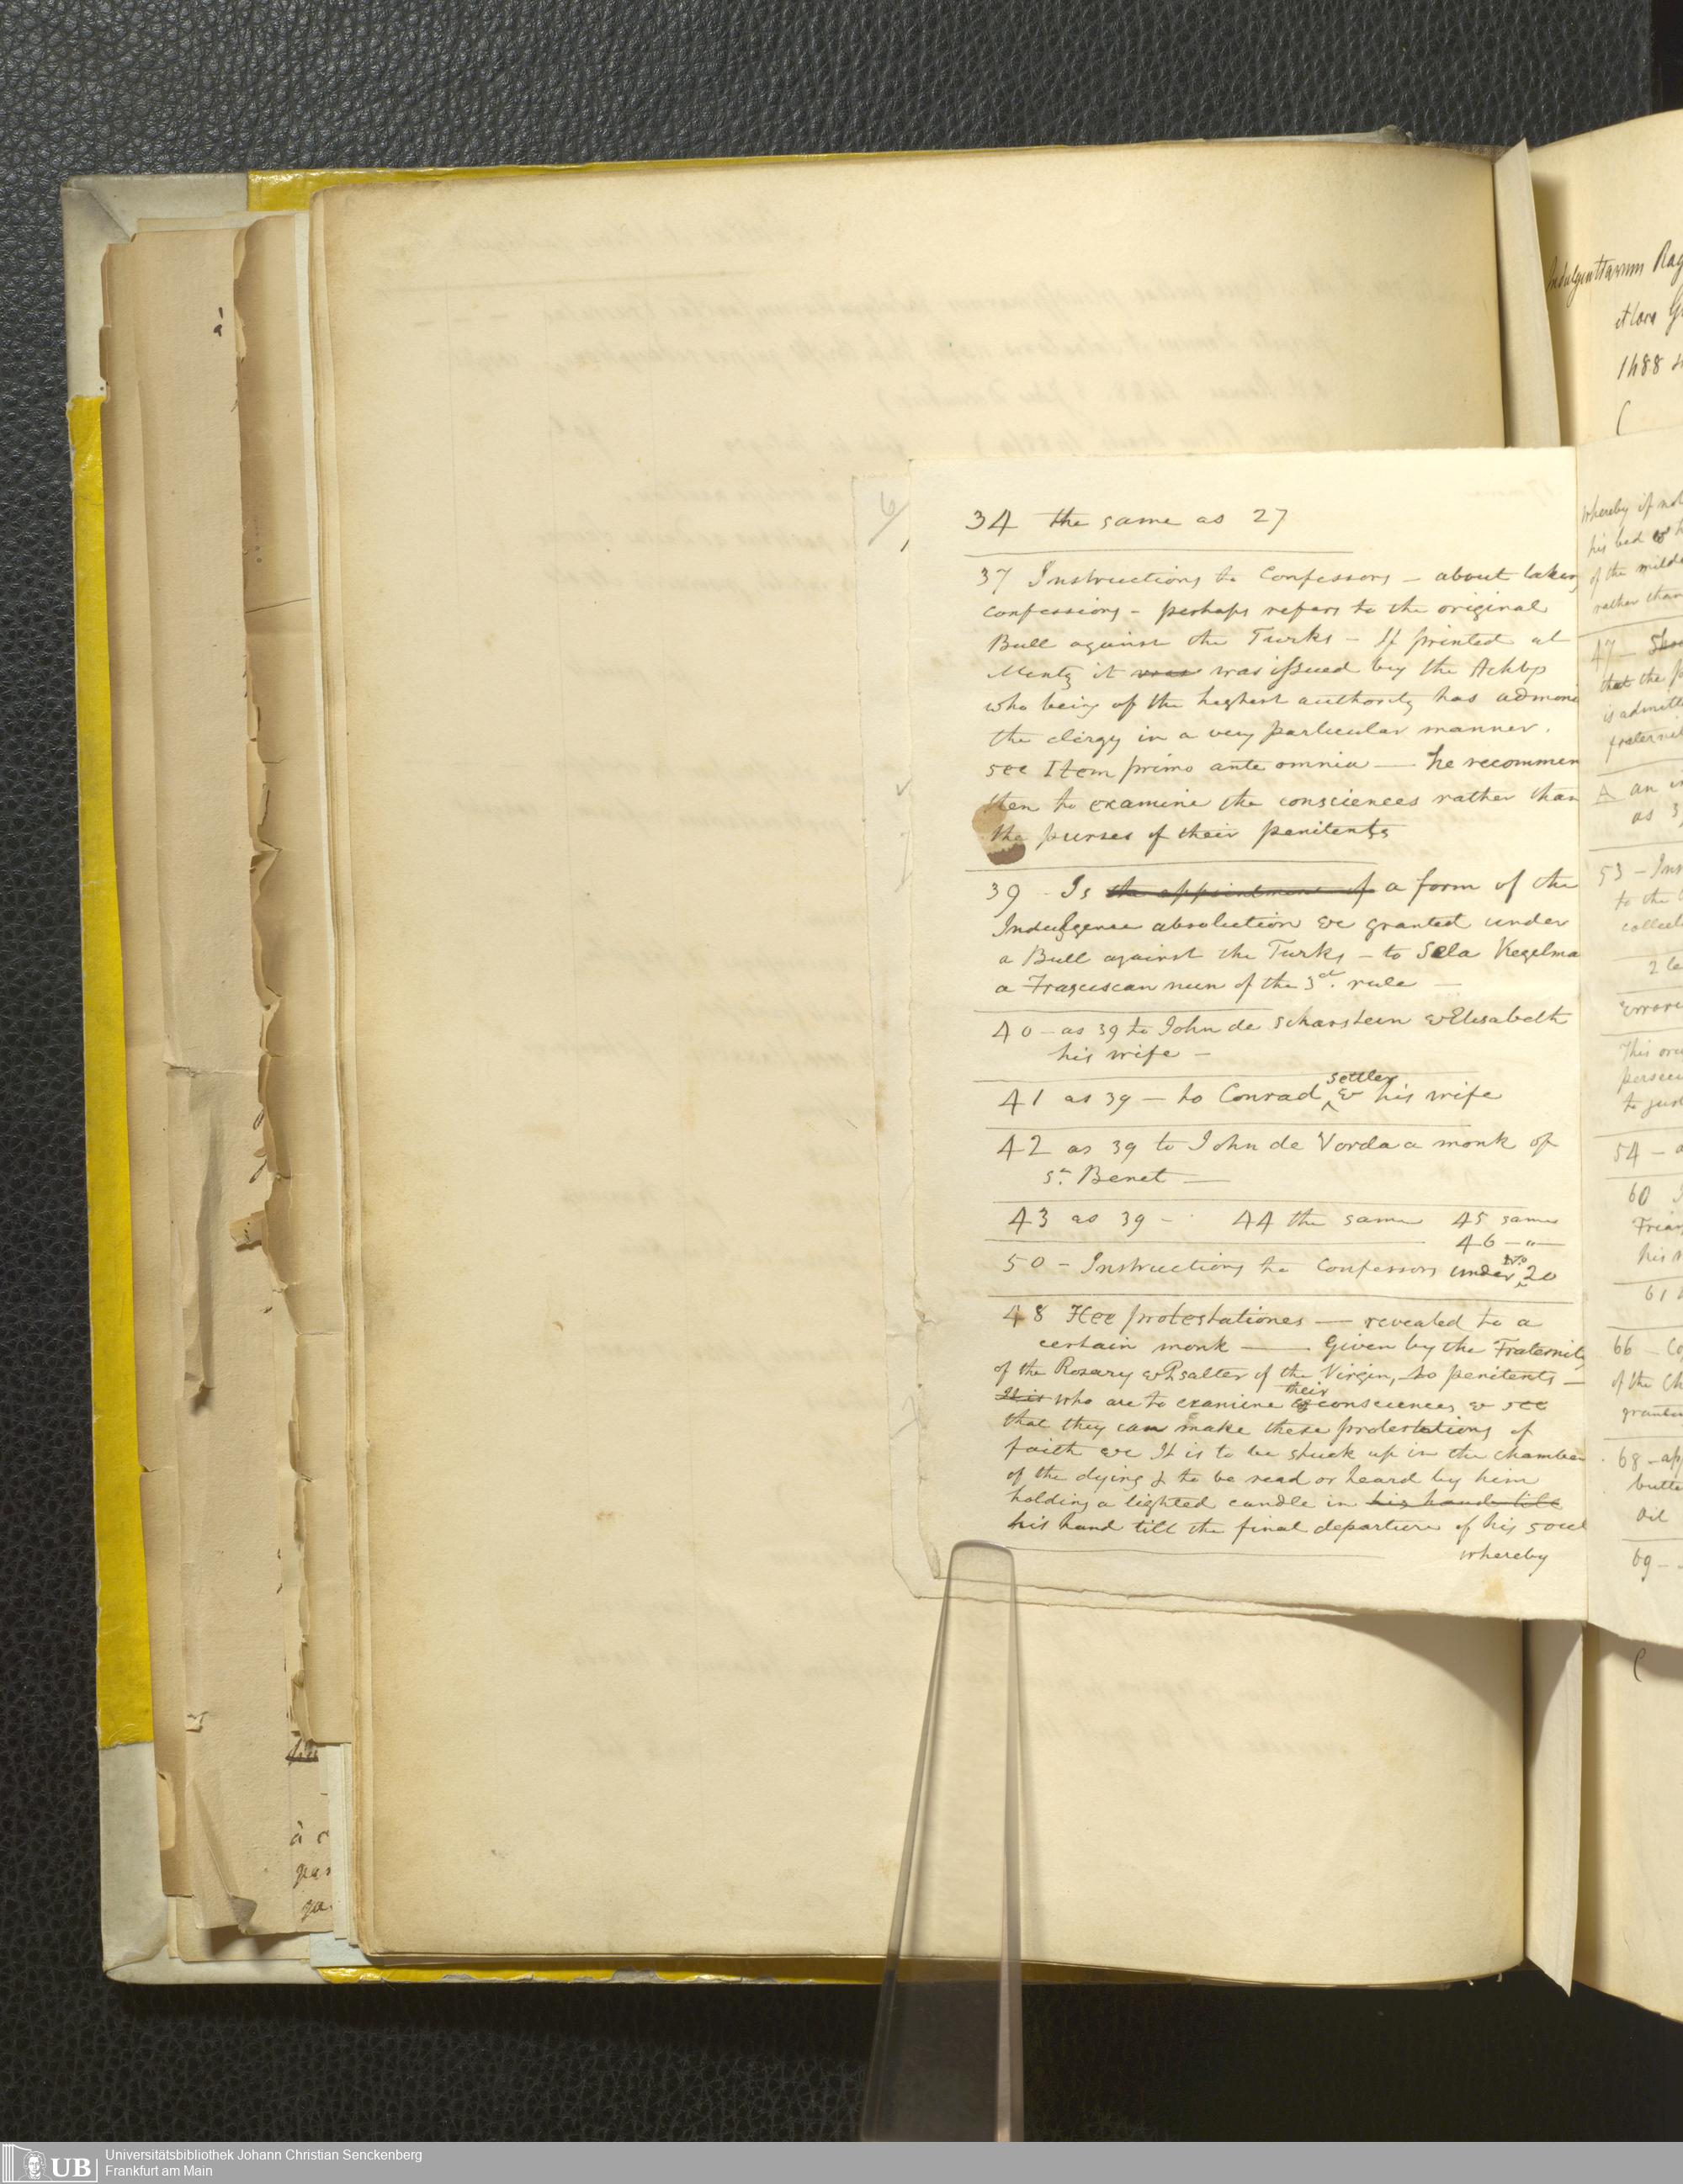 34 the same as 27
37 Instructions to Confessors – about taking
confessions – perhaps refers to the original
Bull against the Turks – If printed at
Mentz it was was issued by the Achbp
who being of the highest authority has admoni
the clergy in a very particular manner.
see Item primo ante omnia — he recommen
then to examine the consciences rather than
the purses of their penitents
39 – Is the appointment of a form of the
Indulgence absolution &c granted under
a Bull against the Turks – to Sela Kegelma
a Franciscan nun of the 3d. rule –
40 – as 39 to John de Scharstein & Elisabeth
his wife –
settler
41 as 39 – to Conrad & his wife
42 as 39 to John de Vorda a monk of
St. Benet —
43 as 39 – 44 the same 45 same
46 – " –
50 – Instructions to Confessors under No 20
48 Hec protestationes — revealed to a
certain monk — Given by the Fraternity
of the Rosary & Psalter of the Virgin, to penitents –
It is who are to examine their consciences & see
that they can make these protestations of
faith &c It is to be stuck up in the chamber
of the dying & to be read or heard by him
holding a lighted candle in his hand till
his hand till the final departure of his soul
whereby
Indulgentiarum
et loca
1488
whereby if not
his bed
of the milde
rather than
47 –
that the
is admitt
fraternit
A an
as 3
53 – Ins
to the
collect
2 le
Errore
This
persec
to
54 –
60
Frian
his
61
66 – Co
of the Ch
grantin
68 – ap
butte
Oil
69 –
à
à c
Universitätsbibliothek Johann Christian Senckenberg
Frankfurt am Main
UB